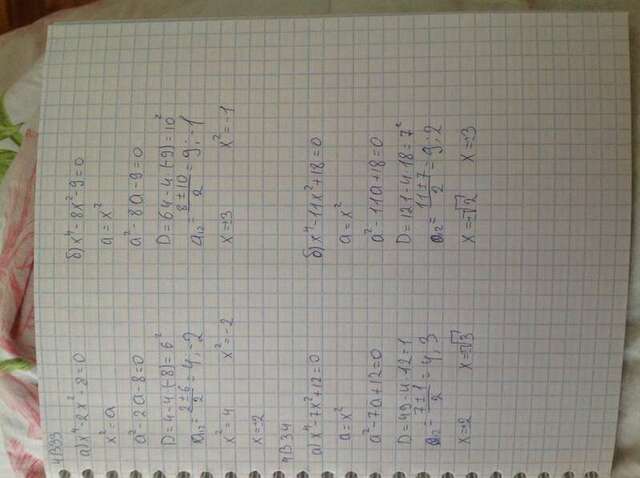 4В33
а) x⁴-2x²-8=0
x²=a
a²-2a-8=0
D=4-4·(-8)=6²
a₁,₂=(2±6)/2=4;-2
x²=4 x²=-2
x=±2
б) x⁴-8x²-9=0
a=x²
a²-8a-9=0
D=64-4·(-9)=10²
a₁,₂=(8±10)/2=9;-1
x=±3 x²=-1
4В34
а) x⁴-7x²+12=0
a=x²
a²-7a+12=0
D=49-4·12=1
a₁,₂=(7±1)/2=4;3
x=±2 x=±√3
б) x⁴-11x²+18=0
a=x²
a²-11a+18=0
D=121-4·18=7²
a₁,₂=(11±7)/2=9;2
x=±√2 x=±3